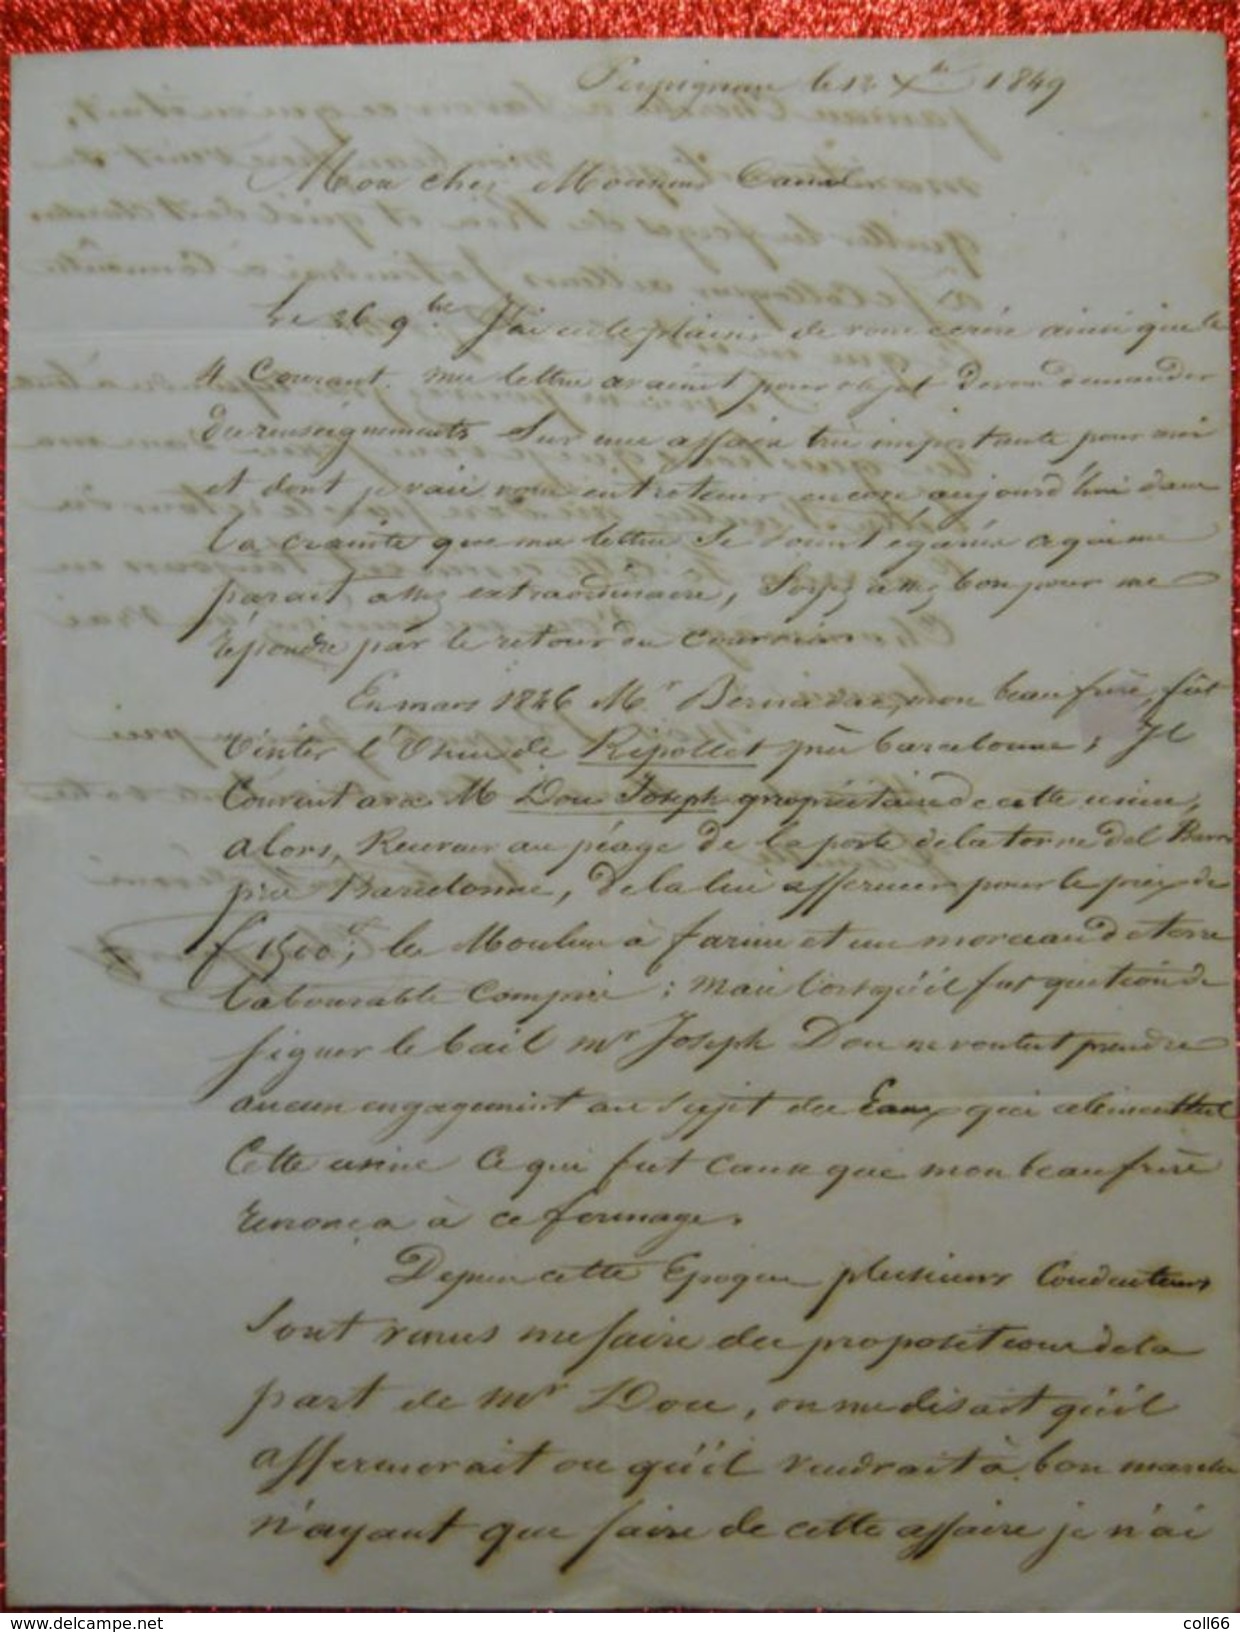 Perpignan le 12 Xbre 1849
Mon cher Monsieur
Le 26 9bre J'ai eu le plaisir de vous ecrire ainsi que le
4 Courant. mes lettres avaient pour objet de vous demander
des renseignements Sur une affaire très importante pour moi
et dont je vais vous entretenir encore aujourd'hui dans
la crainte que mes lettres Se soient égarées ce qui me
parait assez extraordinaire, Soyez assez bon pour me
répondre par le retour du courrier.
En mars 1846 Mr mon beau frère, fût
visiter l'Usine de Ripollet près barcelonne; Il
Convint avec M Dou Joseph propriétaire de cette usine,
alors, Receveur au péage de la porte de la torre del Barro
près Barcelonne, de la lui affermer pour le prix de
f 1500; le Moulin à farine et un morceau de terre
labourable Compris; mais lorsqu'il fut question de
signer le bail mr Joseph Dou ne voulut prendre
aucun engagement au sujet des Eaux qui alimentent
Cette usine Ce qui fut cause que mon beau frère
renonça à ce fermage.
Depuis cette Epoque plusieurs Conducteurs
Sont venus me faire des propositions de la
part de Mr Dou, on me disait qu'il
affermerait ou qu'il vendrait à bon marché
n'ayant que faire de cette affaire je n'ai
delcampe.net
coll66